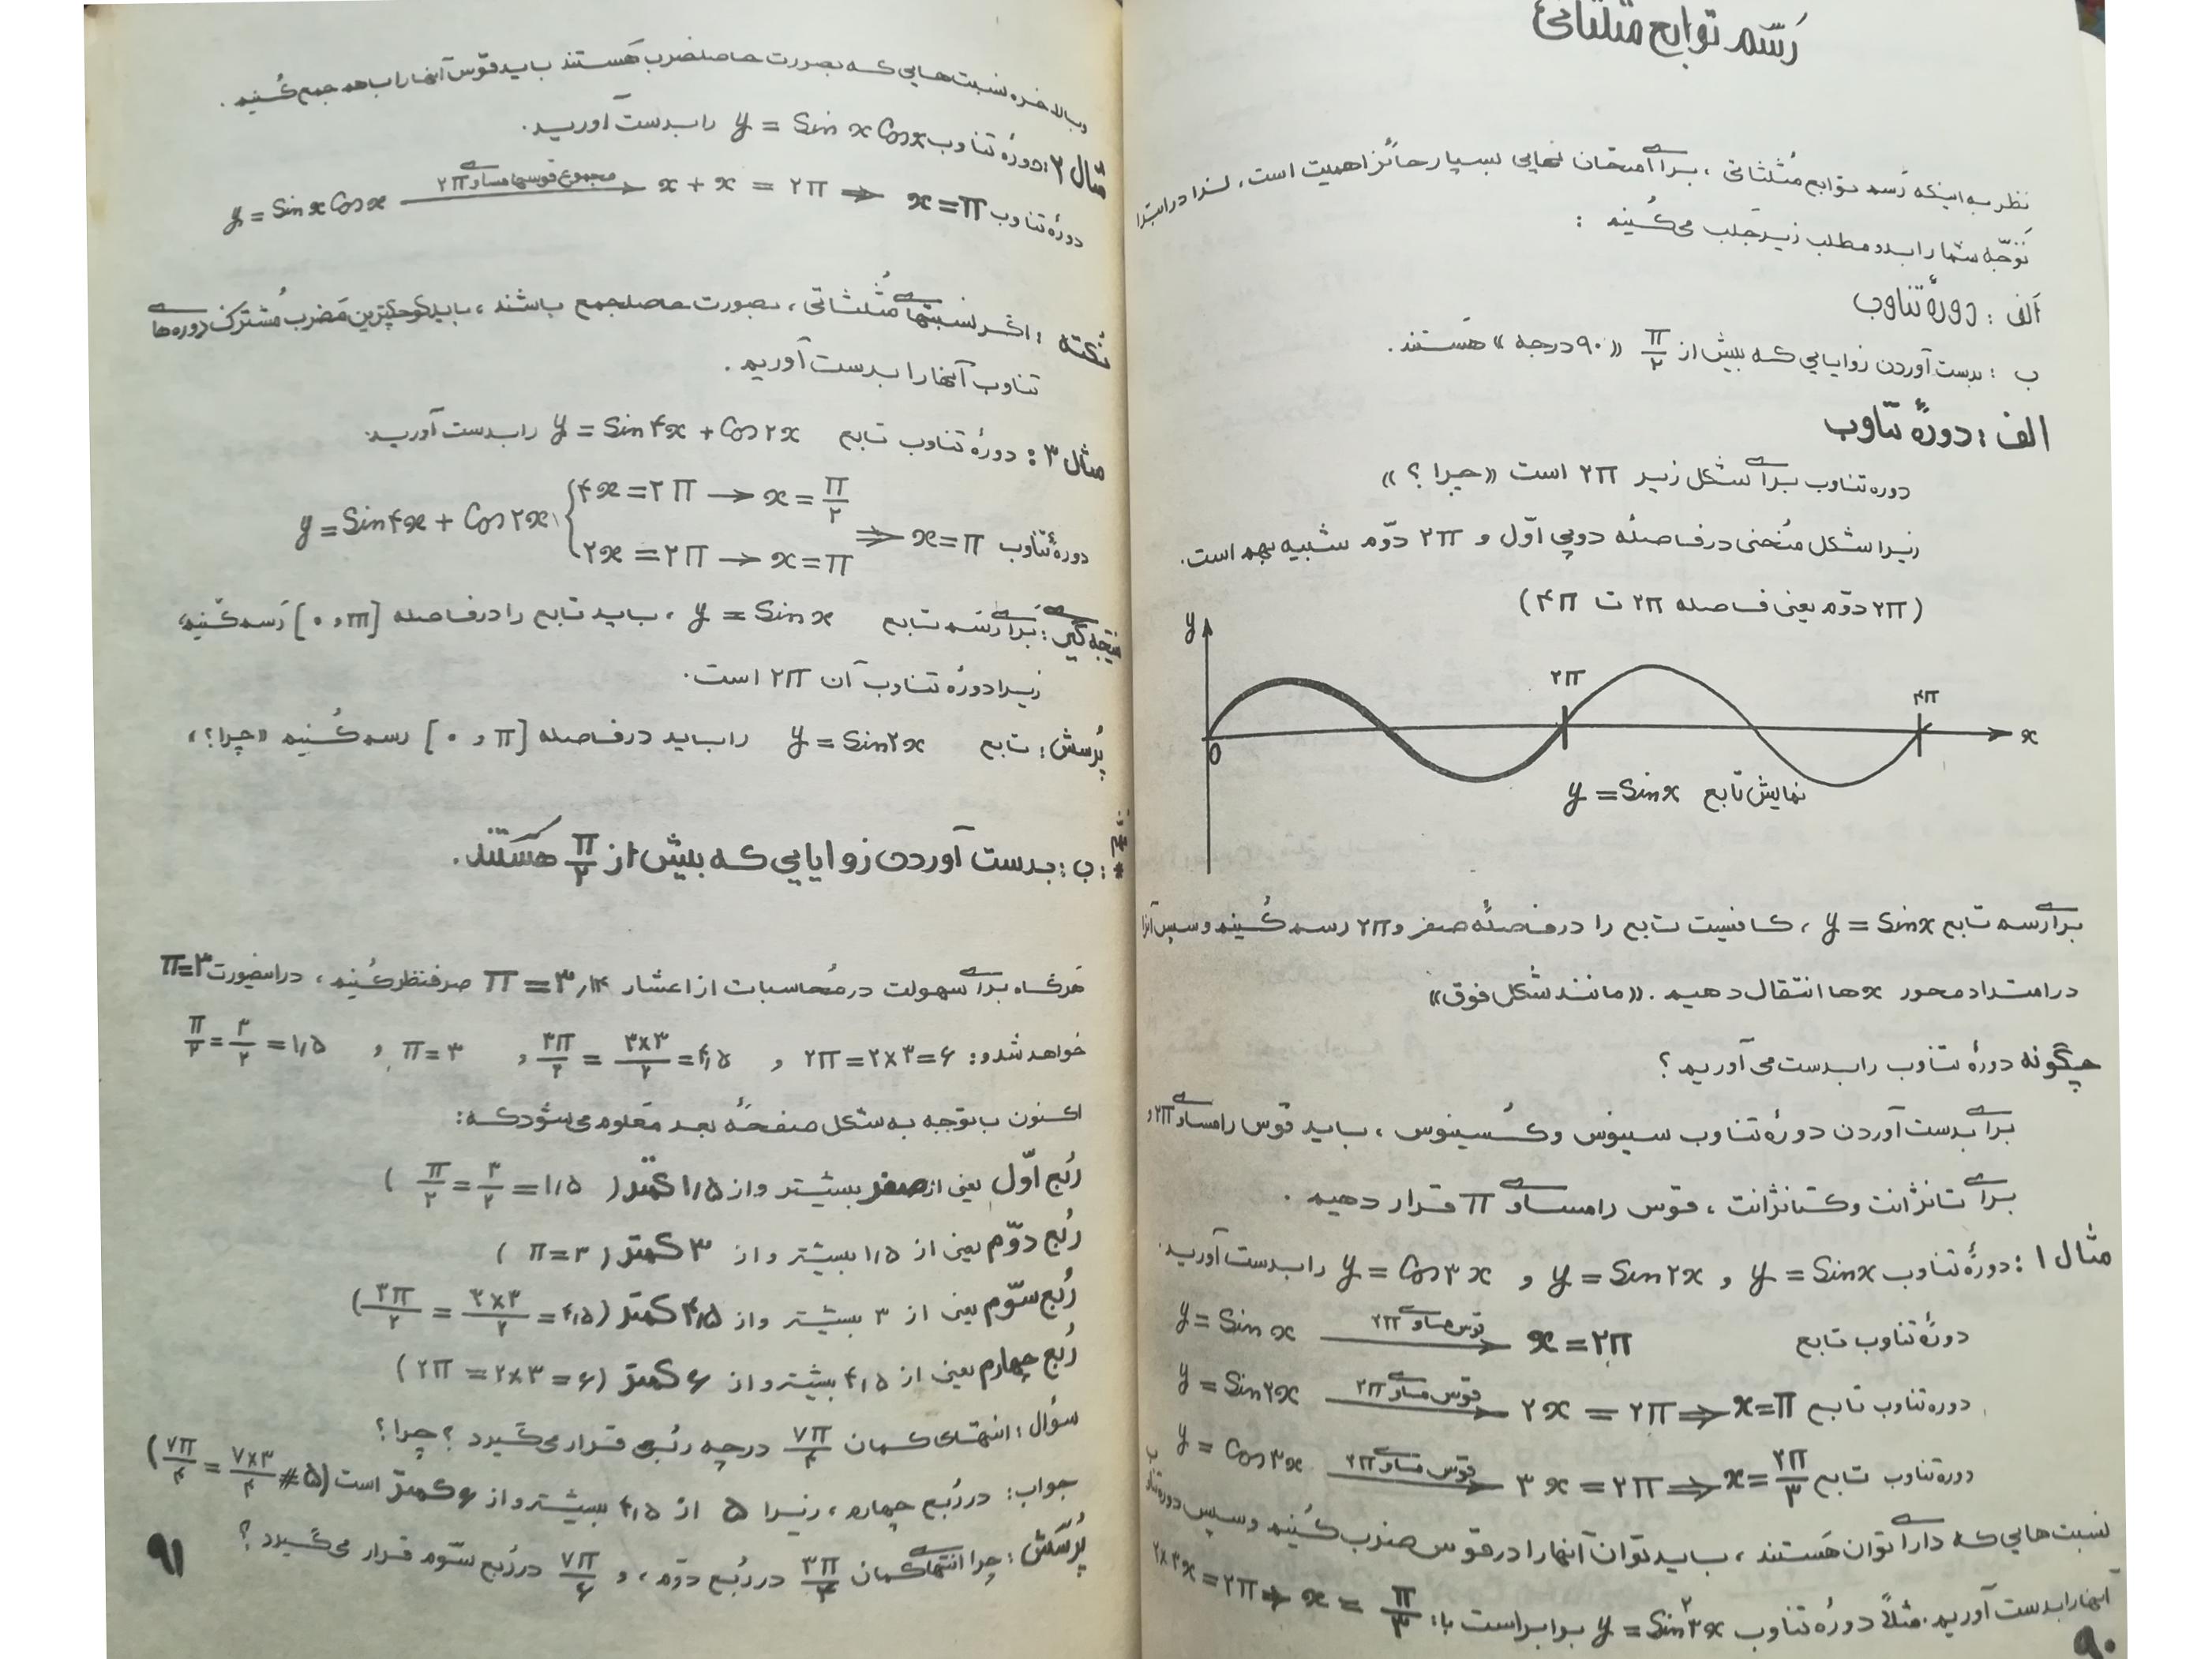 رسم توابع مثلثاتی
نظر به اینکه رسم توابع مثلثاتی ، برای امتحان نهایی بسیار حائز اهمیت است ، لذا در ابتدا
توجّه شما را بدو مطلب زیر جلب می‌کنیم :
الف : دورهٔ تناوب
ب : بدست آوردن زوایایی که بیش از π/۲ «۹۰ درجه» هستند .
الف : دورهٔ تناوب
دوره تناوب برای شکل زیر ۲π است «چرا ؟»
زیرا شکل منحنی در فاصلهٔ دوپی اوّل و ۲π دوّم شبیه بهم است .
(۲π دوّم یعنی فاصله ۲π تا ۴π)
y
۲π
۴π
x
o
نمایش تابع y = Sin x
برای رسم تابع y = Sin x ، کافیست تابع را در فاصلهٔ صفر و ۲π رسم کنیم و سپس آنرا
در امتداد محور xها انتقال دهیم . «مانند شکل فوق»
چگونه دورهٔ تناوب را بدست می‌آوریم ؟
برای بدست آوردن دورهٔ تناوب سینوس و کسینوس ، باید قوس را مساوی ۲π و
برای تانژانت و کتانژانت ، قوس را مساوی π قرار دهیم .
مثال ۱ : دورهٔ تناوب y = Sin x و y = Sin ۲x و y = Cos ۳x را بدست آورید .
y = Sin x قوس مساوی ۲π → x = ۲π دورهٔ تناوب تابع
y = Sin ۲x قوس مساوی ۲π → ۲x = ۲π ⇒ x = π دوره تناوب تابع
y = Cos ۳x قوس مساوی ۲π → ۳x = ۲π ⇒ x = ۲π/۳ دوره تناوب تابع
نسبت هایی که دارای توان هستند ، باید توان آنها را در قوس ضرب کنیم و سپس دوره تناوب
آنها را بدست آوریم . مثلاً دورهٔ تناوب y = Sin² ۳x برابر است با : ۲×۳x = ۲π ⇒ x = π/۳
۹۰
وبالاخره نسبت هایی که بصورت حاصلضرب هستند باید قوس آنها را با هم جمع کنیم .
مثال ۲ : دورهٔ تناوب y = Sin x Cos x را بدست آورید .
y = Sin x Cos x مجموع قوسها مساوی ۲π → x + x = ۲π ⇒ x = π دورهٔ تناوب
نکته : اگر نسبتهای مثلثاتی ، بصورت حاصلجمع باشند ، باید کوچکترین مضرب مشترک دوره های
تناوب آنها را بدست آوریم .
مثال ۳ : دورهٔ تناوب تابع y = Sin ۴x + Cos ۲x را بدست آورید .
y = Sin ۴x + Cos ۲x { ۴x = ۲π → x = π/۲
۲x = ۲π → x = π ⇒ x = π دورهٔ تناوب
نتیجه گیری : برای رسم تابع y = Sin x ، باید تابع را در فاصله [۰ و ۲π] رسم کنیم ،
زیرا دورهٔ تناوب آن ۲π است .
پرسش : تابع y = Sin ۲x را باید در فاصله [۰ و π] رسم کنیم «چرا ؟»
مهم
* ب : بدست آوردن زوایایی که بیش از π/۲ هستند .
هرگاه برای سهولت در محاسبات از اعشار π = ۳٫۱۴ صرفنظر کنیم ، در اینصورت π = ۳
خواهد شد و : ۲π = ۲×۳ = ۶ و ۳π/۲ = ۳×۳/۲ = ۴٫۵ و π = ۳ و π/۲ = ۳/۲ = ۱٫۵
اکنون با توجه به شکل صفحهٔ بعد معلوم می‌شود که :
ربع اوّل یعنی از صفر بیشتر و از ۱٫۵ کمتر ( π/۲ = ۳/۲ = ۱٫۵ )
ربع دوّم یعنی از ۱٫۵ بیشتر و از ۳ کمتر ( π = ۳ )
ربع سوّم یعنی از ۳ بیشتر و از ۴٫۵ کمتر ( ۳π/۲ = ۳×۳/۲ = ۴٫۵ )
ربع چهارم یعنی از ۴٫۵ بیشتر و از ۶ کمتر ( ۲π = ۲×۳ = ۶ )
سؤال : انتهای کمان ۷π/۴ در چه ربعی قرار می‌گیرد ؟ چرا ؟
جواب : در ربع چهارم ، زیرا ۵ از ۴٫۵ بیشتر و از ۶ کمتر است ( ۷π/۴ = ۷×۳/۴ # ۵ )
پرسش : چرا انتهای کمان ۳π/۴ در ربع دوّم ، و ۷π/۶ در ربع سوّم قرار می‌گیرد ؟
۹۱